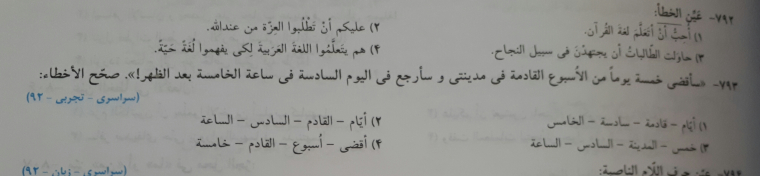 ۷۹۲- عَيّن الخطأ:
۱) أُحِبُّ أنْ أتَعلَّمَ لغةَ القُرآن.
۲) عليكم أنْ تَطْلُبوا العِزّة من عندالله.
۳) حاولت الطّالباتُ أن يجتهدْنَ فى سبيل النجاح.
۴) هم يتعلَّمُوا اللغةَ العَرَبيةَ لِكى يفهموا لُغةً حَيّةً.
۷۹۳- «سأقضى خمسة يوماً من الأسبوع القادمة فى مدينتى و سأرجع فى اليوم السادسة فى ساعة الخامسة بعد الظهر!». صحّح الأخطاء:
(سراسرى - تجربى - ۹۲)
۱) أيّام - قادمة - سادسة - الخامس
۲) أيّام - القادم - السادس - الساعة
۳) خمس - المدينة - السادس - الساعة
۴) أقضى - أسبوع - القادم - خامسة
(سراسرى - زبان - ۹۲)
حرف اللّام الناصبة: